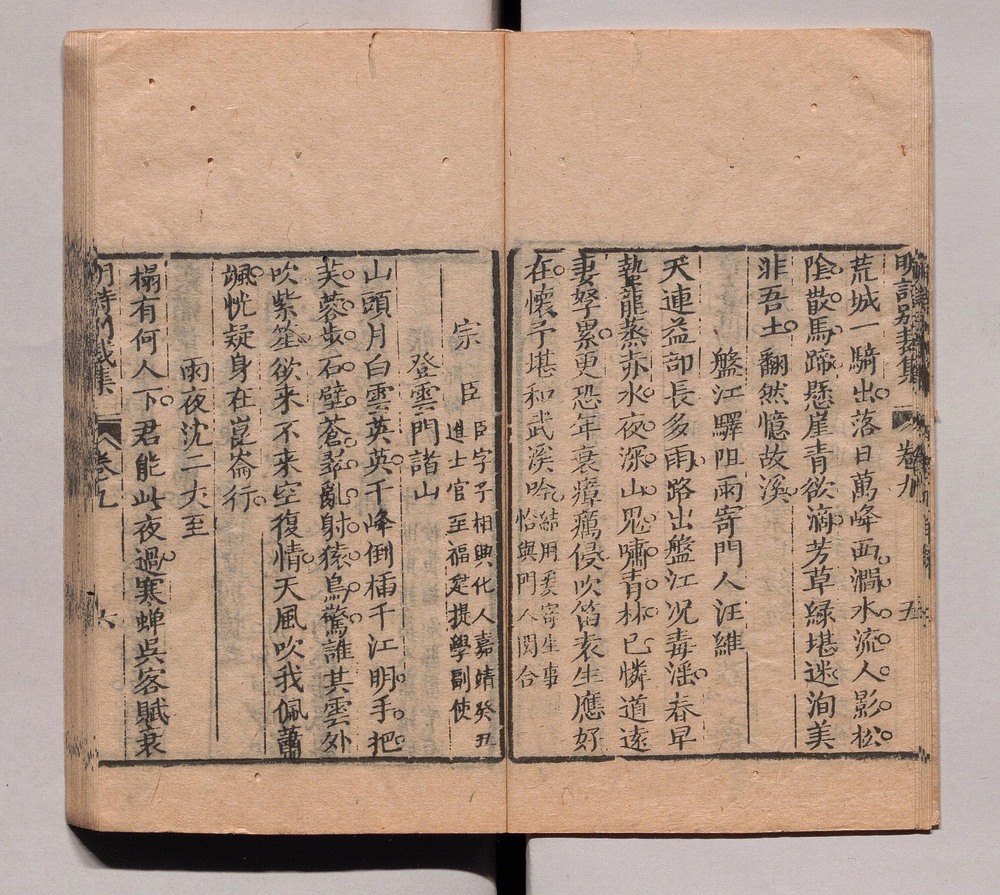 明詩別裁集 卷九 五
荒城一騎出落日萬峰西澗水流人影松
陰散馬蹄懸崖青欲滴芳草綠堪迷洵美
非吾土翻然憶故溪
盤江驛阻雨寄門人汪維
天連益部長多雨路出盤江况毒潘春早
蟄龍蒸赤水夜深山鬼嘯青林已憐道遠
妻孥累更恐年衰瘴癘侵吹笛袁生應好
在懷予堪和武溪吟結用爰寄生事
恰與門人関合
宗臣臣字子相興化人嘉靖癸丑
進士官至福建提學副使
登雲門諸山
山頭月白雲英英千峰倒插千江明手把
芙蓉步石壁蒼翠亂射猿鳥驚誰其雲外
吹紫笙欲来不来空復情天風吹我佩蕭
颯恍疑身在崑崙行
雨夜沈二丈至
榻有何人下君能此夜過寒蟬吳客賦衰
明詩別裁集 卷九 六